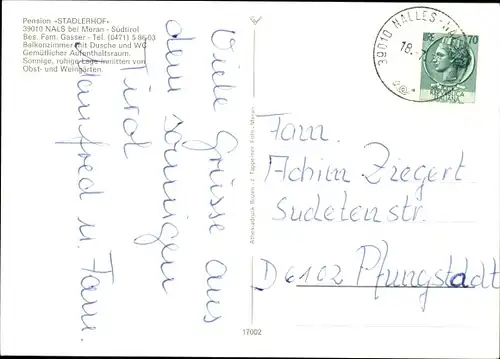 Pension «STADLERHOF»
39010 NALS bei Meran - Südtirol
Bes. Fam. Gasser - Tel. (0471) 5 86 03
Balkonzimmer mit Dusche und WC
Gemütlicher Aufenthaltsraum.
Sonnige, ruhige Lage inmitten von
Obst- und Weingärten.
Viele Grüsse aus
dem sonnigen
Tirol
Manfred u. Fam.
39010 NALLES-
18.
LIRE 70
Fam.
Achim Ziegert
Sudetenstr.
D 6102 Pfungstadt
17002